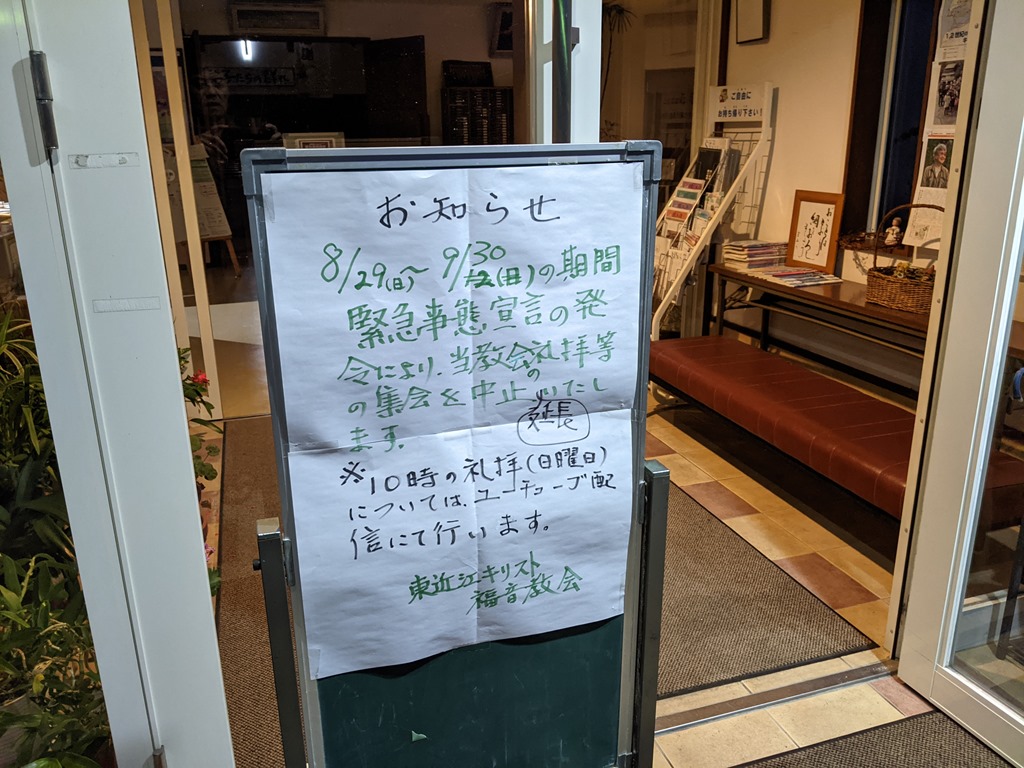 お知らせ
8/29(日)〜9/30
12(日)の期間
緊急事態宣言の発
令により、当教会の礼拝等
の集会を中止いたし
ます。
延長
※10時の礼拝(日曜日)
については、ユーチューブ配
信にて行います。
東近江キリスト
福音教会
ご自由に
お持ち帰り下さい!